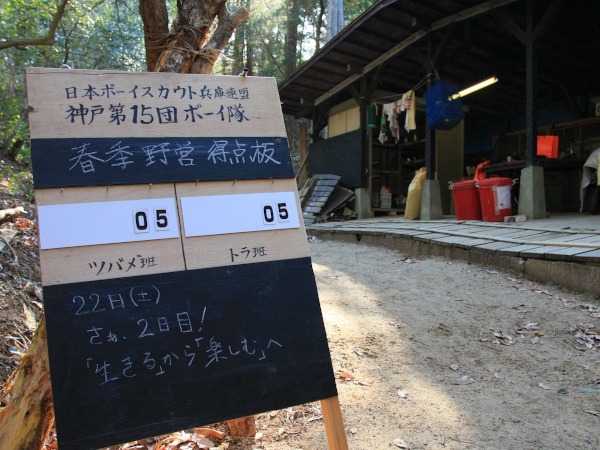 日本ボーイスカウト兵庫連盟
神戸第15団ボーイ隊
春季野営 得点板
05 05
ツバメ班 トラ班
22日(土)
さぁ、2日目!
「生きる」から「楽しむ」へ